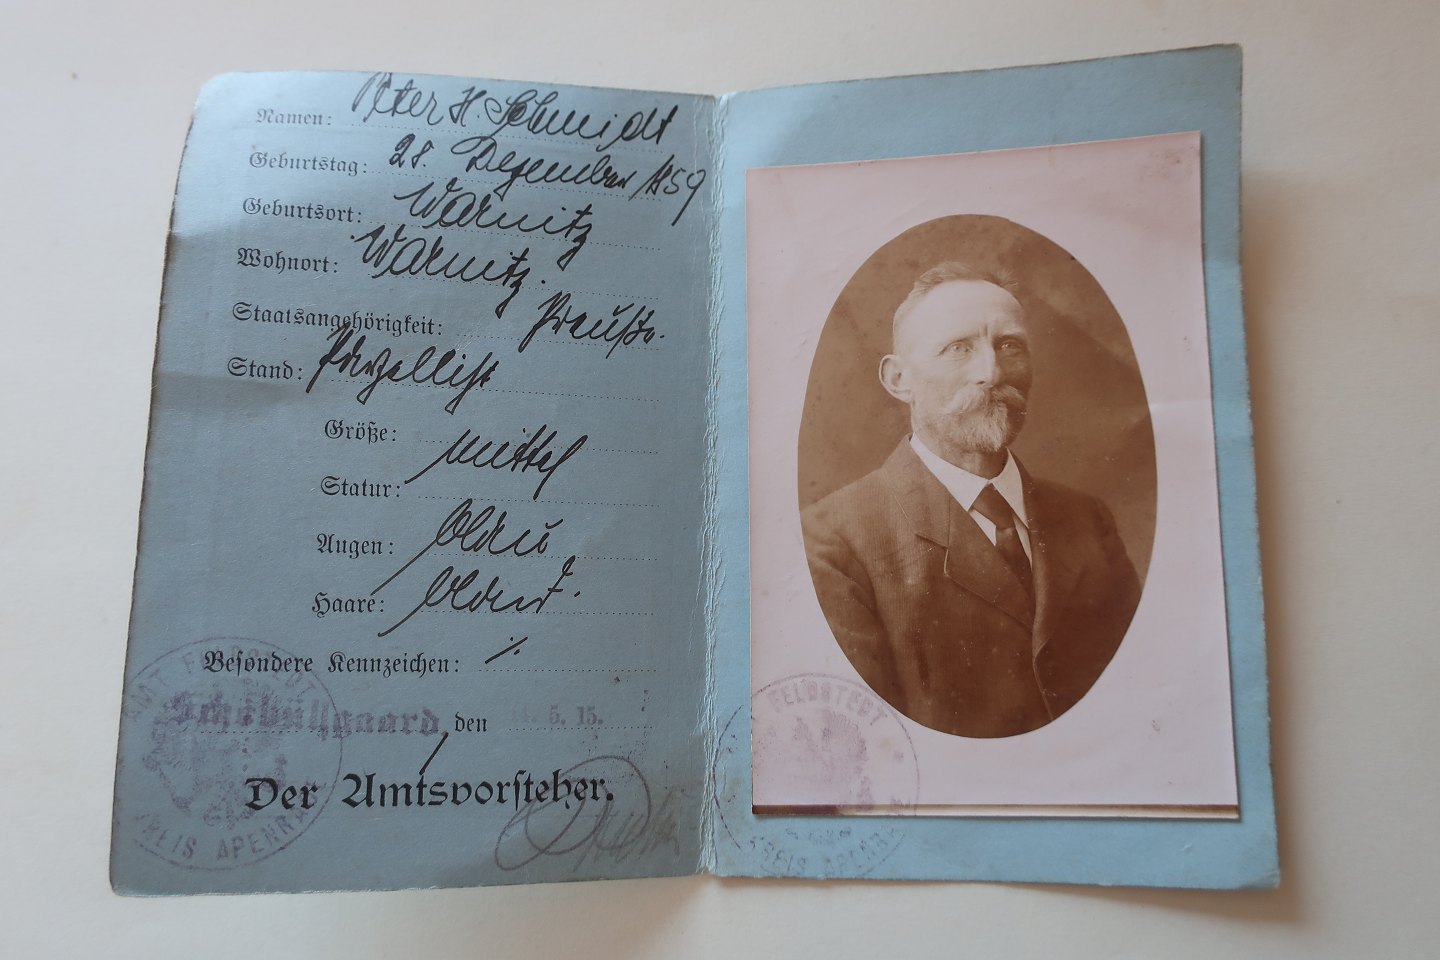 Namen: Peter H. Schmidt
Geburtstag: 28. Dezember 1859
Geburtsort: Warnitz
Wohnort: Warnitz.
Staatsangehörigkeit: Preuße.
Stand: Parzellist
Größe:
mittel
Statur:
Augen: blau
Haare: blond.
Besondere Kennzeichen: ·/.
Schobüllgaard, den 14. 5. 15.
Der Amtsvorsteher.
AMT FELDSTEDT
KREIS APENRADE
FELDSTEDT
KREIS APENRADE